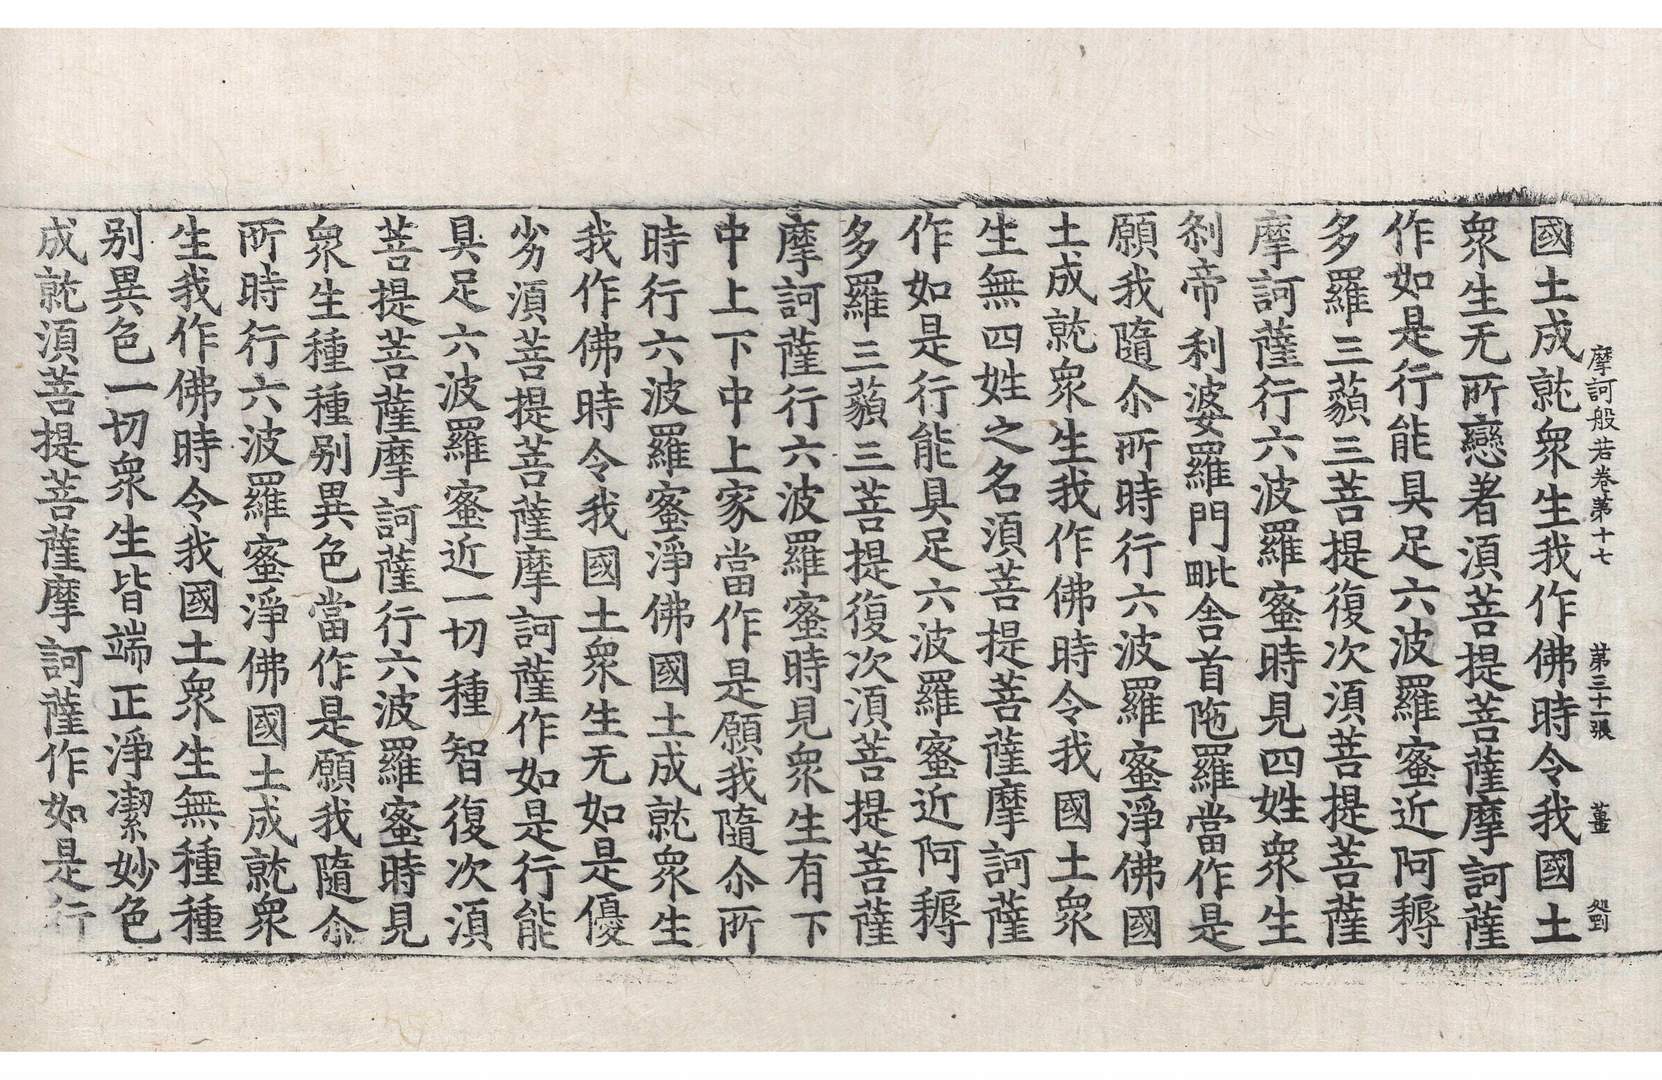 摩訶般若卷第十七　第三十一張　薑　処劉
國土成就衆生我作佛時令我國土
衆生无所戀著湏菩提菩薩摩訶薩
作如是行能具足六波羅蜜近阿耨
多羅三藐三菩提復次湏菩提菩薩
摩訶薩行六波羅蜜時見四姓衆生
刹帝利婆羅門毗舍首陁羅當作是
願我隨尒所時行六波羅蜜淨佛國
土成就衆生我作佛時令我國土衆
生無四姓之名湏菩提菩薩摩訶薩
作如是行能具足六波羅蜜近阿耨
多羅三藐三菩提復次湏菩提菩薩
摩訶薩行六波羅蜜時見衆生有下
中上下中上家當作是願我隨尒所
時行六波羅蜜淨佛國土成就衆生
我作佛時令我國土衆生无如是優
劣湏菩提菩薩摩訶薩作如是行能
具足六波羅蜜近一切種智復次湏
菩提菩薩摩訶薩行六波羅蜜時見
衆生種種别異色當作是願我隨尒
所時行六波羅蜜淨佛國土成就衆
生我作佛時令我國土衆生無種種
别異色一切衆生皆端正淨潔妙色
成就湏菩提菩薩摩訶薩作如是行